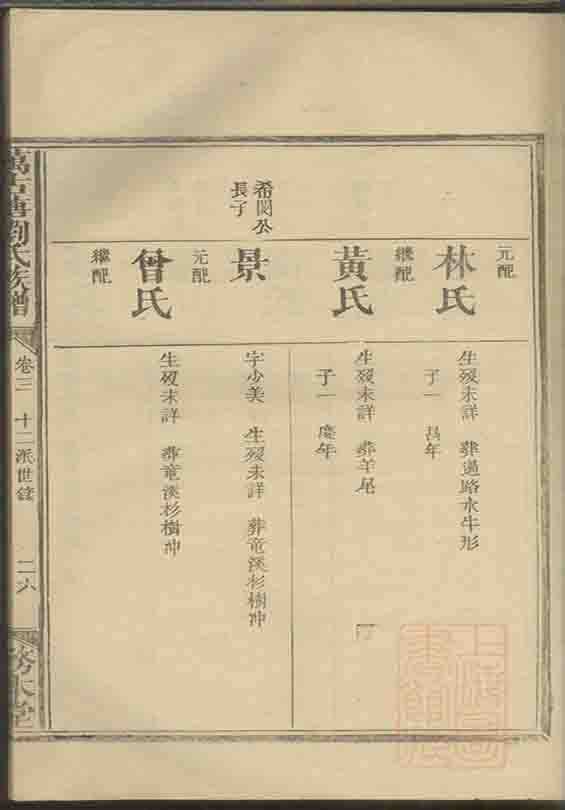 元配
林氏
生歿未詳 葬過路水牛形
子一 昌年
繼配
黃氏
生歿未詳 葬羊尾
子一 慶年
希閔公
長子
景
字少美 生歿未詳 葬竜溪杉樹冲
元配
曾氏
生歿未詳 葬竜溪杉樹冲
繼配
萬古塘劉氏族譜
卷三 十二派世錄
二六
務本堂
上海圖
書館藏